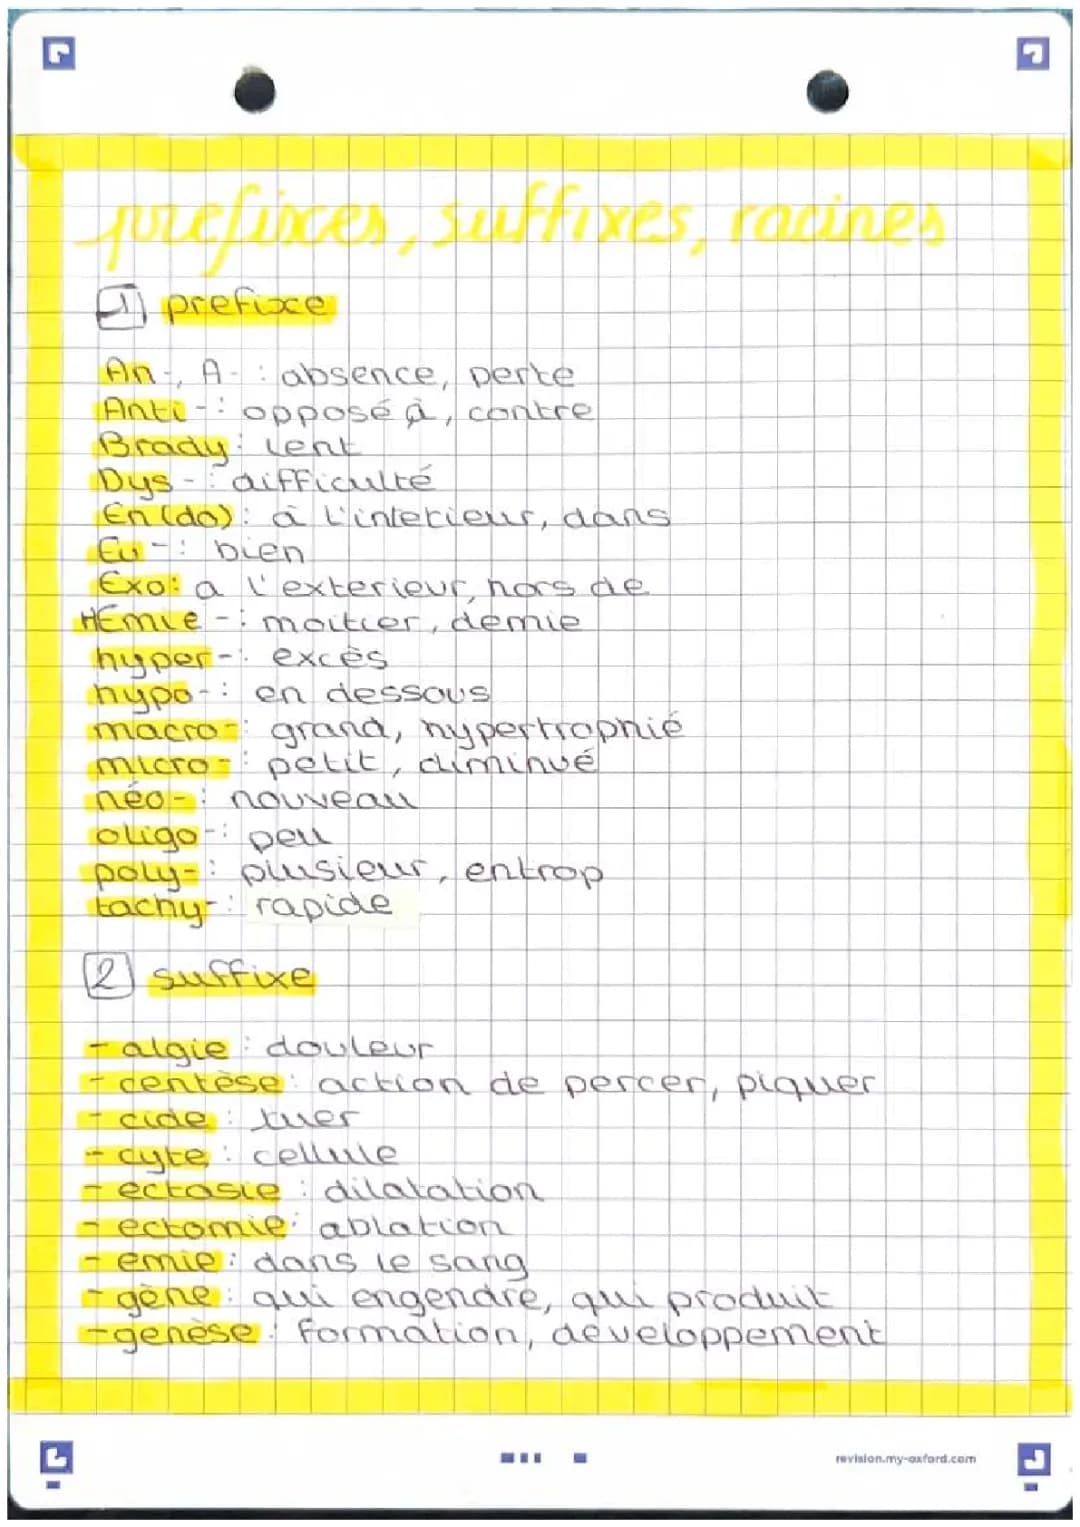 prefixes, suffixes, racines
1 prefixe
An-, A- : absence, perte
Anti-: opposé à, contre
Brady: lent
Dys-: difficulté
En(do): à l'interieur, dans
Eu-: bien
Exo: a l'exterieur, hors de
HEmie-: moitier, demie
hyper-: excès
hypo-: en dessous
macro-: grand, hypertrophié
micro-: petit, diminué
néo-: nouveau
oligo-: peu
poly-: plusieur, entrop
tachy-: rapide
2 suffixe
- algie: douleur
- centèse: action de percer, piquer
- cide: tuer
- cyte: cellule
- ectasie: dilatation
- ectomie: ablation
- emie: dans le sang
- gène: qui engendre, qui produit
- genèse: formation, developpement
revision.my-oxford.com